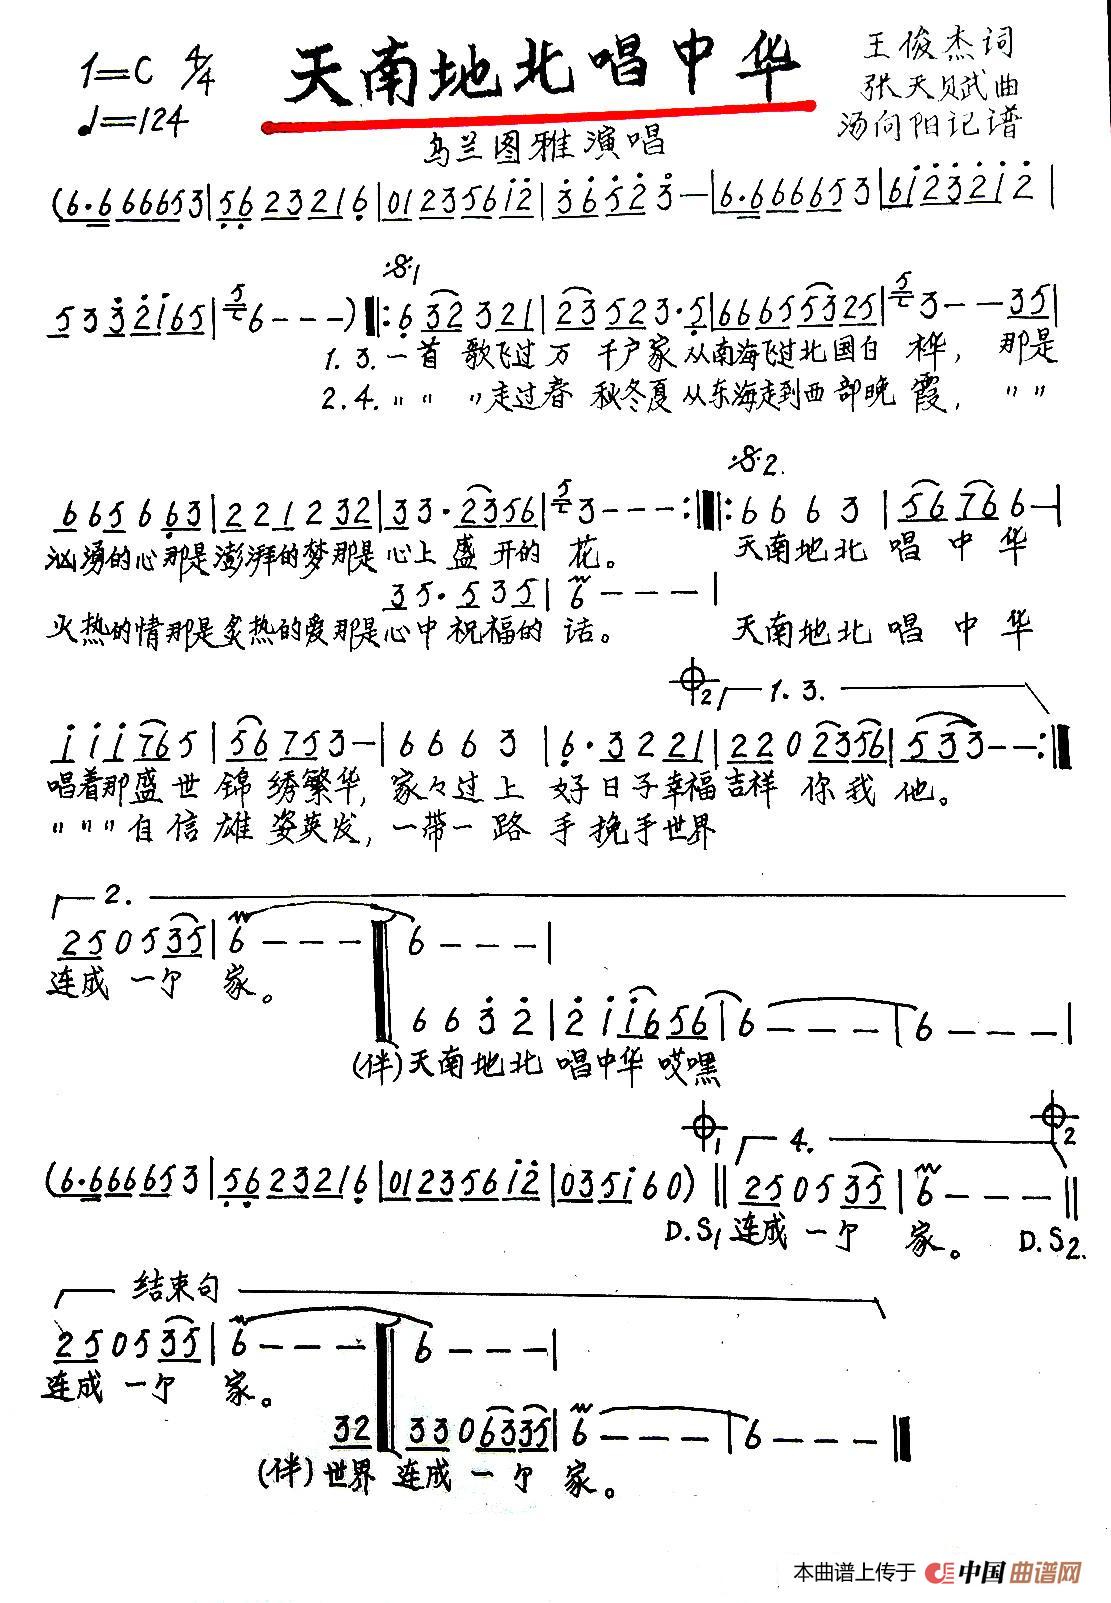 1=C 4/4
♩=124
天南地北唱中华
王俊杰词
张天赋曲
汤向阳记谱
乌兰图雅演唱
(6·6 66653|56 2321 6|0123 5612|3 6 5 2 3—|6·6 6665 3|6123 21 2|
5 3 321 65|6---)‖: 6 32 321|23 523·5|6665 5325|3--35|
1.3. 一首 歌飞过 万 千户家 从南海飞过北国白 桦， 那是
2.4. 〃 〃 〃走过春 秋冬夏 从东海走到西部晚 霞， 〃 〃
665 6 63|221 2 32|33·2356|3---:‖: 6 6 6 3 |56 76 6—|
汹涌的心那是澎湃的梦那是心上 盛 开的 花。 天南地北 唱 中 华
35·535|6---|
火热的情那是炙热的爱那是心中 祝福的 话。 天南地北 唱 中 华
2 1. 3.
1 1 1 76 5|56 75 3—|6 6 6 3|6·3 2 21|22 0 2356|533--:‖
唱着那盛世 锦 绣繁华， 家々过上 好日子幸福吉祥 你我 他。
〃 〃 〃自信雄 姿英发， 一带一 路 手 挽手世界
2.
25 0 5 35|6---‖6---|
连成 一个 家。
6 6 3 2|2 1 16 56|6---|6---|
(伴)天南地北 唱中华 哎嘿
1 4. 2
(6·6 66653|56 2321 6|0123 5612|035160)‖25 0 5 35|6---‖
D.S1 连成 一个 家。 D.S2.
结束句
25 0 5 35|6---‖6---|
连成 一个 家。
32‖33 0 63 35|6---|6---‖
(伴)世界 连成 一个 家。
本曲谱上传于 中国曲谱网